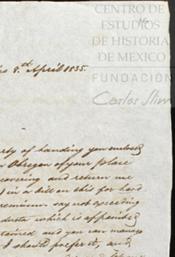 CENTRO DE
ESTUDIOS
DE HISTORIA
DE MEXICO
FUNDACIÓN
Carlos Slim
8.th April 1835.
of handing you enclosed
Obregon of your place
and return me
in a bill on this for hard
premium say not exceeding
which is
and you can manage
I should prefer it, and